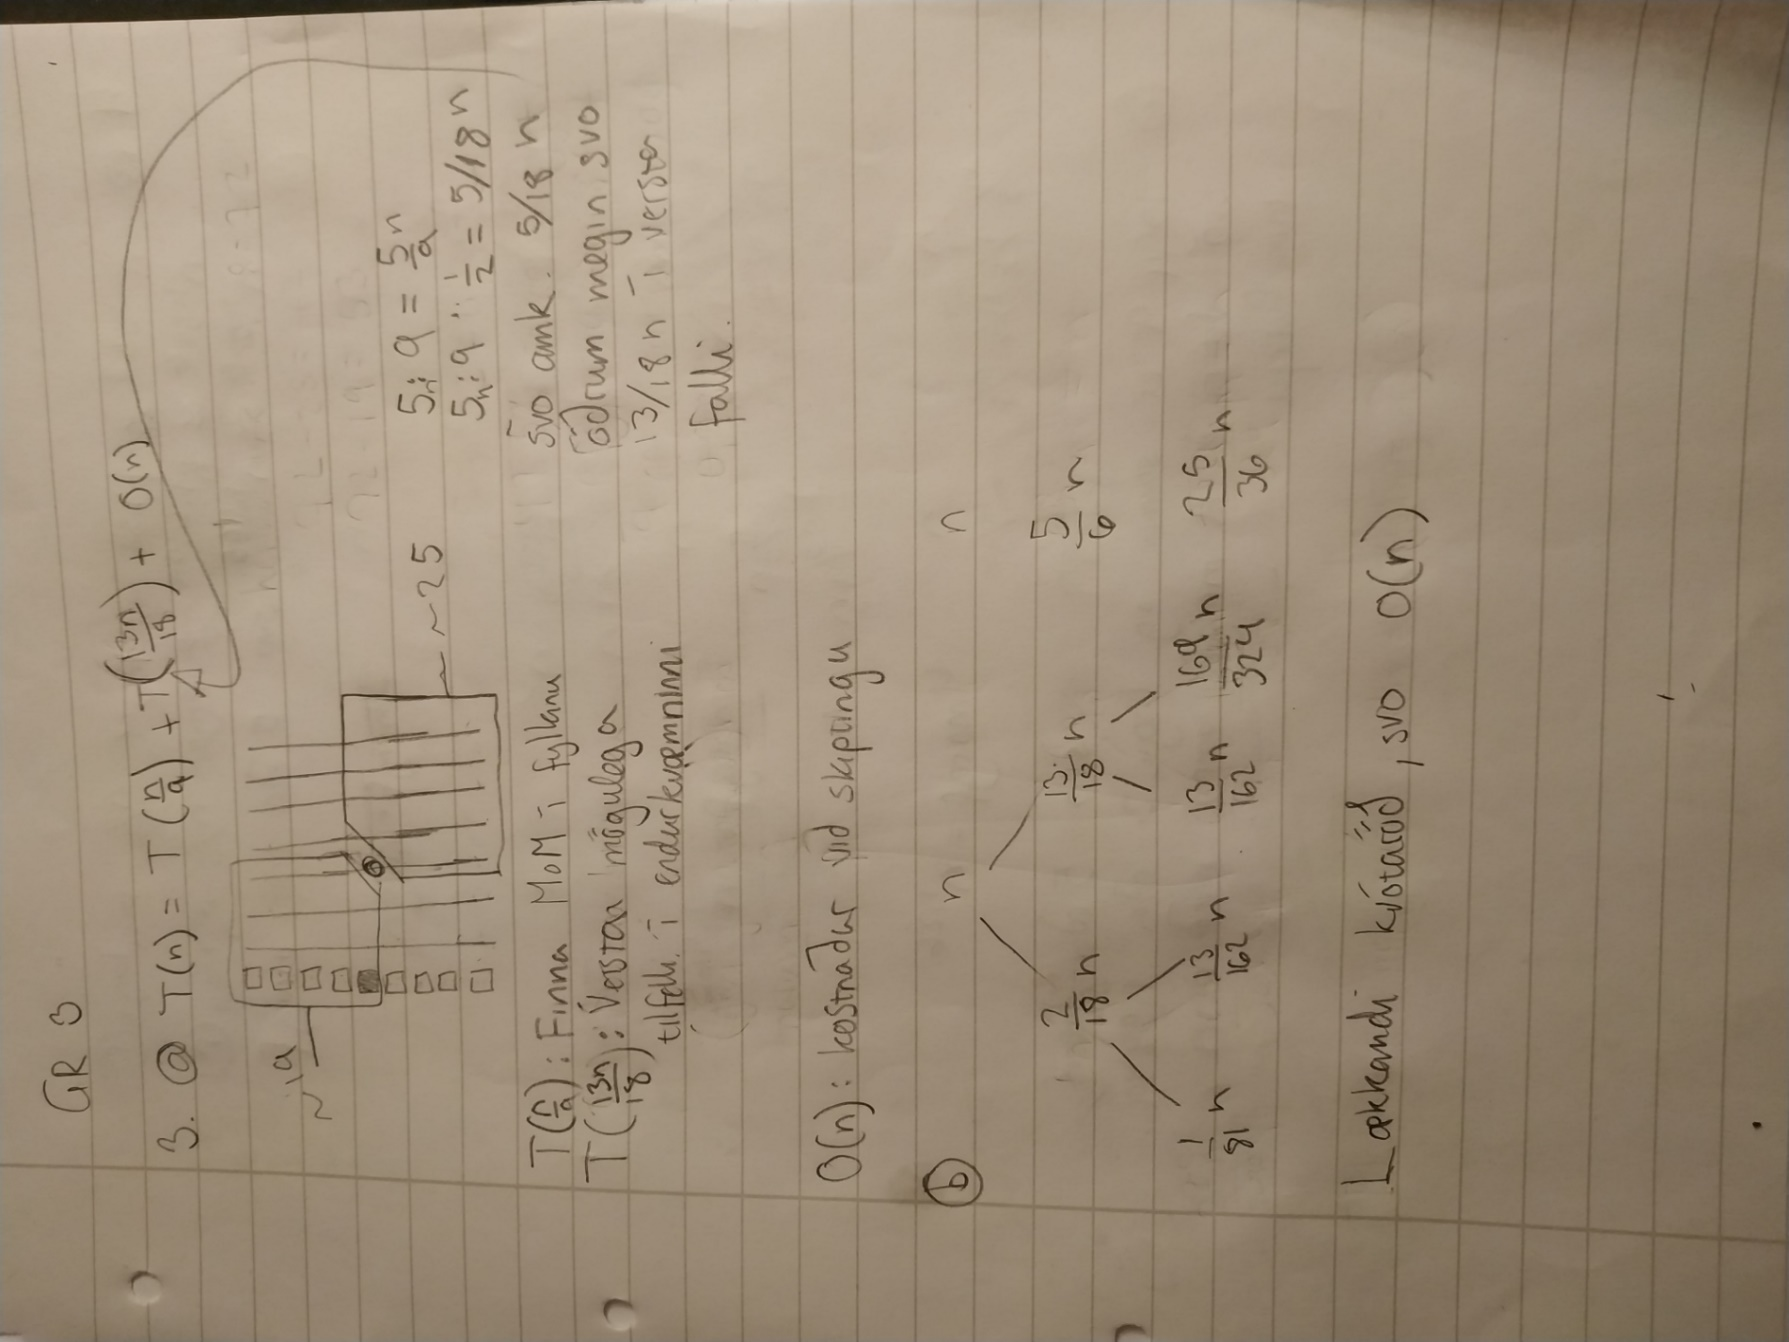 GR 3
3. ⓐ T(n) = T(n/9) + T(13n/18) + O(n)
~19
~25
5 : 9 = 5n/9
5n : 9 · 1/2 = 5/18 n
svo amk. 5/18 n
öðrum megin svo
13/18 n í versta
falli.
T(n/9) : Finna MoM í fylkinu
T(13n/18) : Versta mögulega
tilfelli í endurkvæmninni
O(n) : kostnaður við skiptingu
ⓑ n n
2/18 n 13/18 n 5/6 n
1/81 n 13/162 n 13/162 n 169/324 n 25/36 n
Lækkandi kvótaröð, svo O(n)